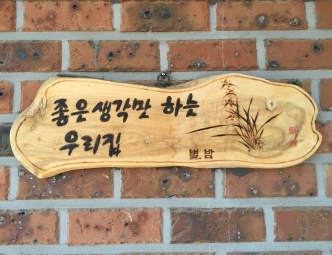 좋은생각만 하는
우리집
별밤